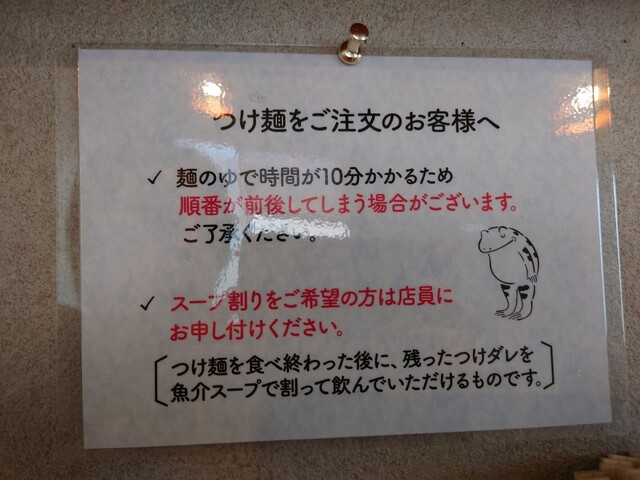 つけ麺をご注文のお客様へ
✓ 麺のゆで時間が10分かかるため
順番が前後してしまう場合がございます。
ご了承ください。
✓ スープ割りをご希望の方は店員に
お申し付けください。
[つけ麺を食べ終わった後に、残ったつけダレを
魚介スープで割って飲んでいただけるものです。]